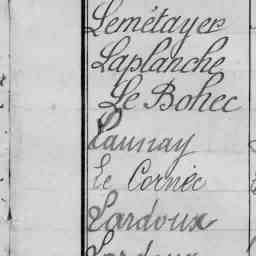 Lemétayer
Laplanche
Le Bohec
Launay
Le Cornec
Lardoux
Lardoux